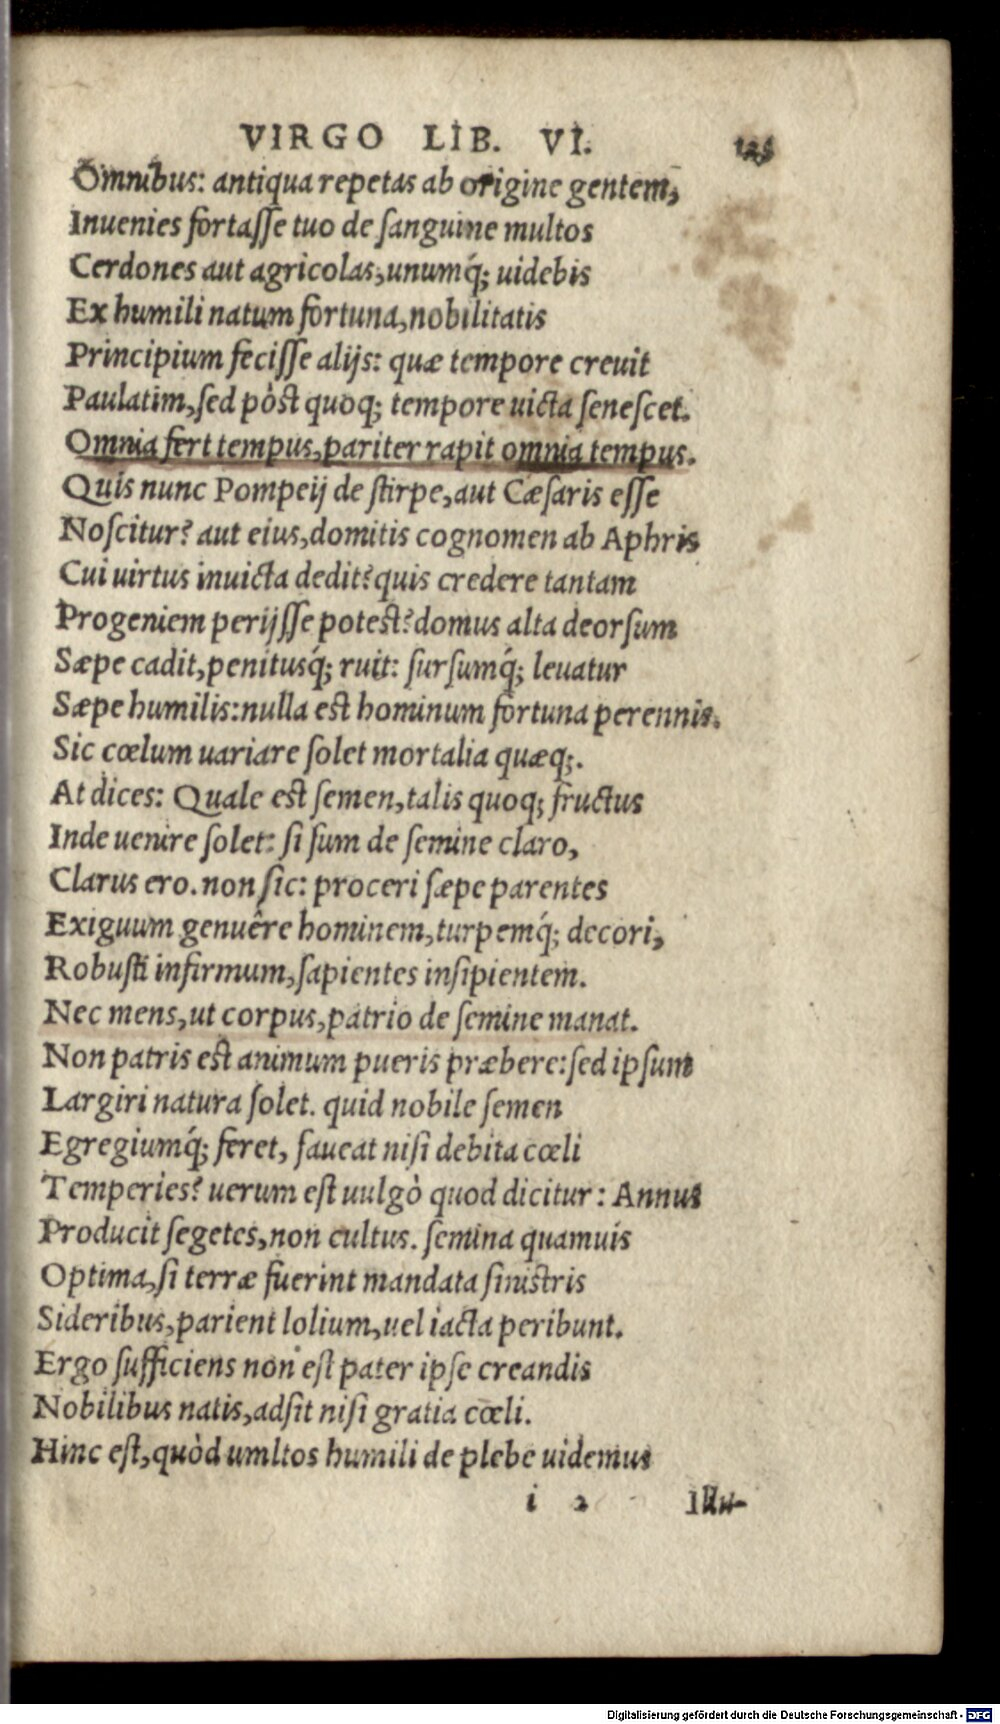 VIRGO LIB. VI.
Omnibus: antiqua repetas ab origine gentem,
Inuenies fortaſſe tuo de ſanguine multos
Cerdones aut agricolas, unumq́; uidebis
Ex humili natum fortuna, nobilitatis
Principium feciſſe alijs: quæ tempore creuit
Paulatim, ſed pòst quoq; tempore uicta ſeneſcet.
Omnia fert tempus, pariter rapit omnia tempus.
Quis nunc Pompeij de ſtirpe, aut Cæſaris eſſe
Noſcitur? aut eius, domitis cognomen ab Aphris
Cui uirtus inuicta dedit? quis credere tantam
Progeniem perijſſe potest? domus alta deorſum
Sæpe cadit, penitusq́; ruit: ſurſumq́; leuatur
Sæpe humilis: nulla est hominum fortuna perennis.
Sic cœlum uariare ſolet mortalia quæq;.
At dices: Quale est ſemen, talis quoq; fructus
Inde uenire ſolet: ſi ſum de ſemine claro,
Clarus ero. non ſic: proceri ſæpe parentes
Exiguum genuêre hominem, turpemq́; decori,
Robuſti infirmum, ſapientes inſipientem.
Nec mens, ut corpus, patrio de ſemine manat.
Non patris est animum pueris præbere: ſed ipſum
Largiri natura ſolet. quid nobile ſemen
Egregiumq́; feret, faueat niſi debita cœli
Temperies? uerum eſt uulgò quod dicitur: Annus
Producit ſegetes, non cultus. ſemina quamuis
Optima, ſi terræ fuerint mandata ſinistris
Sideribus, parient lolium, uel iacta peribunt.
Ergo ſufficiens non eſt pater ipſe creandis
Nobilibus natis, adſit niſi gratia cœli.
Hinc eſt, quòd umltos humili de plebe uidemus
i 2
Digitalisierung gefördert durch die Deutsche Forschungsgemeinschaft - DFG